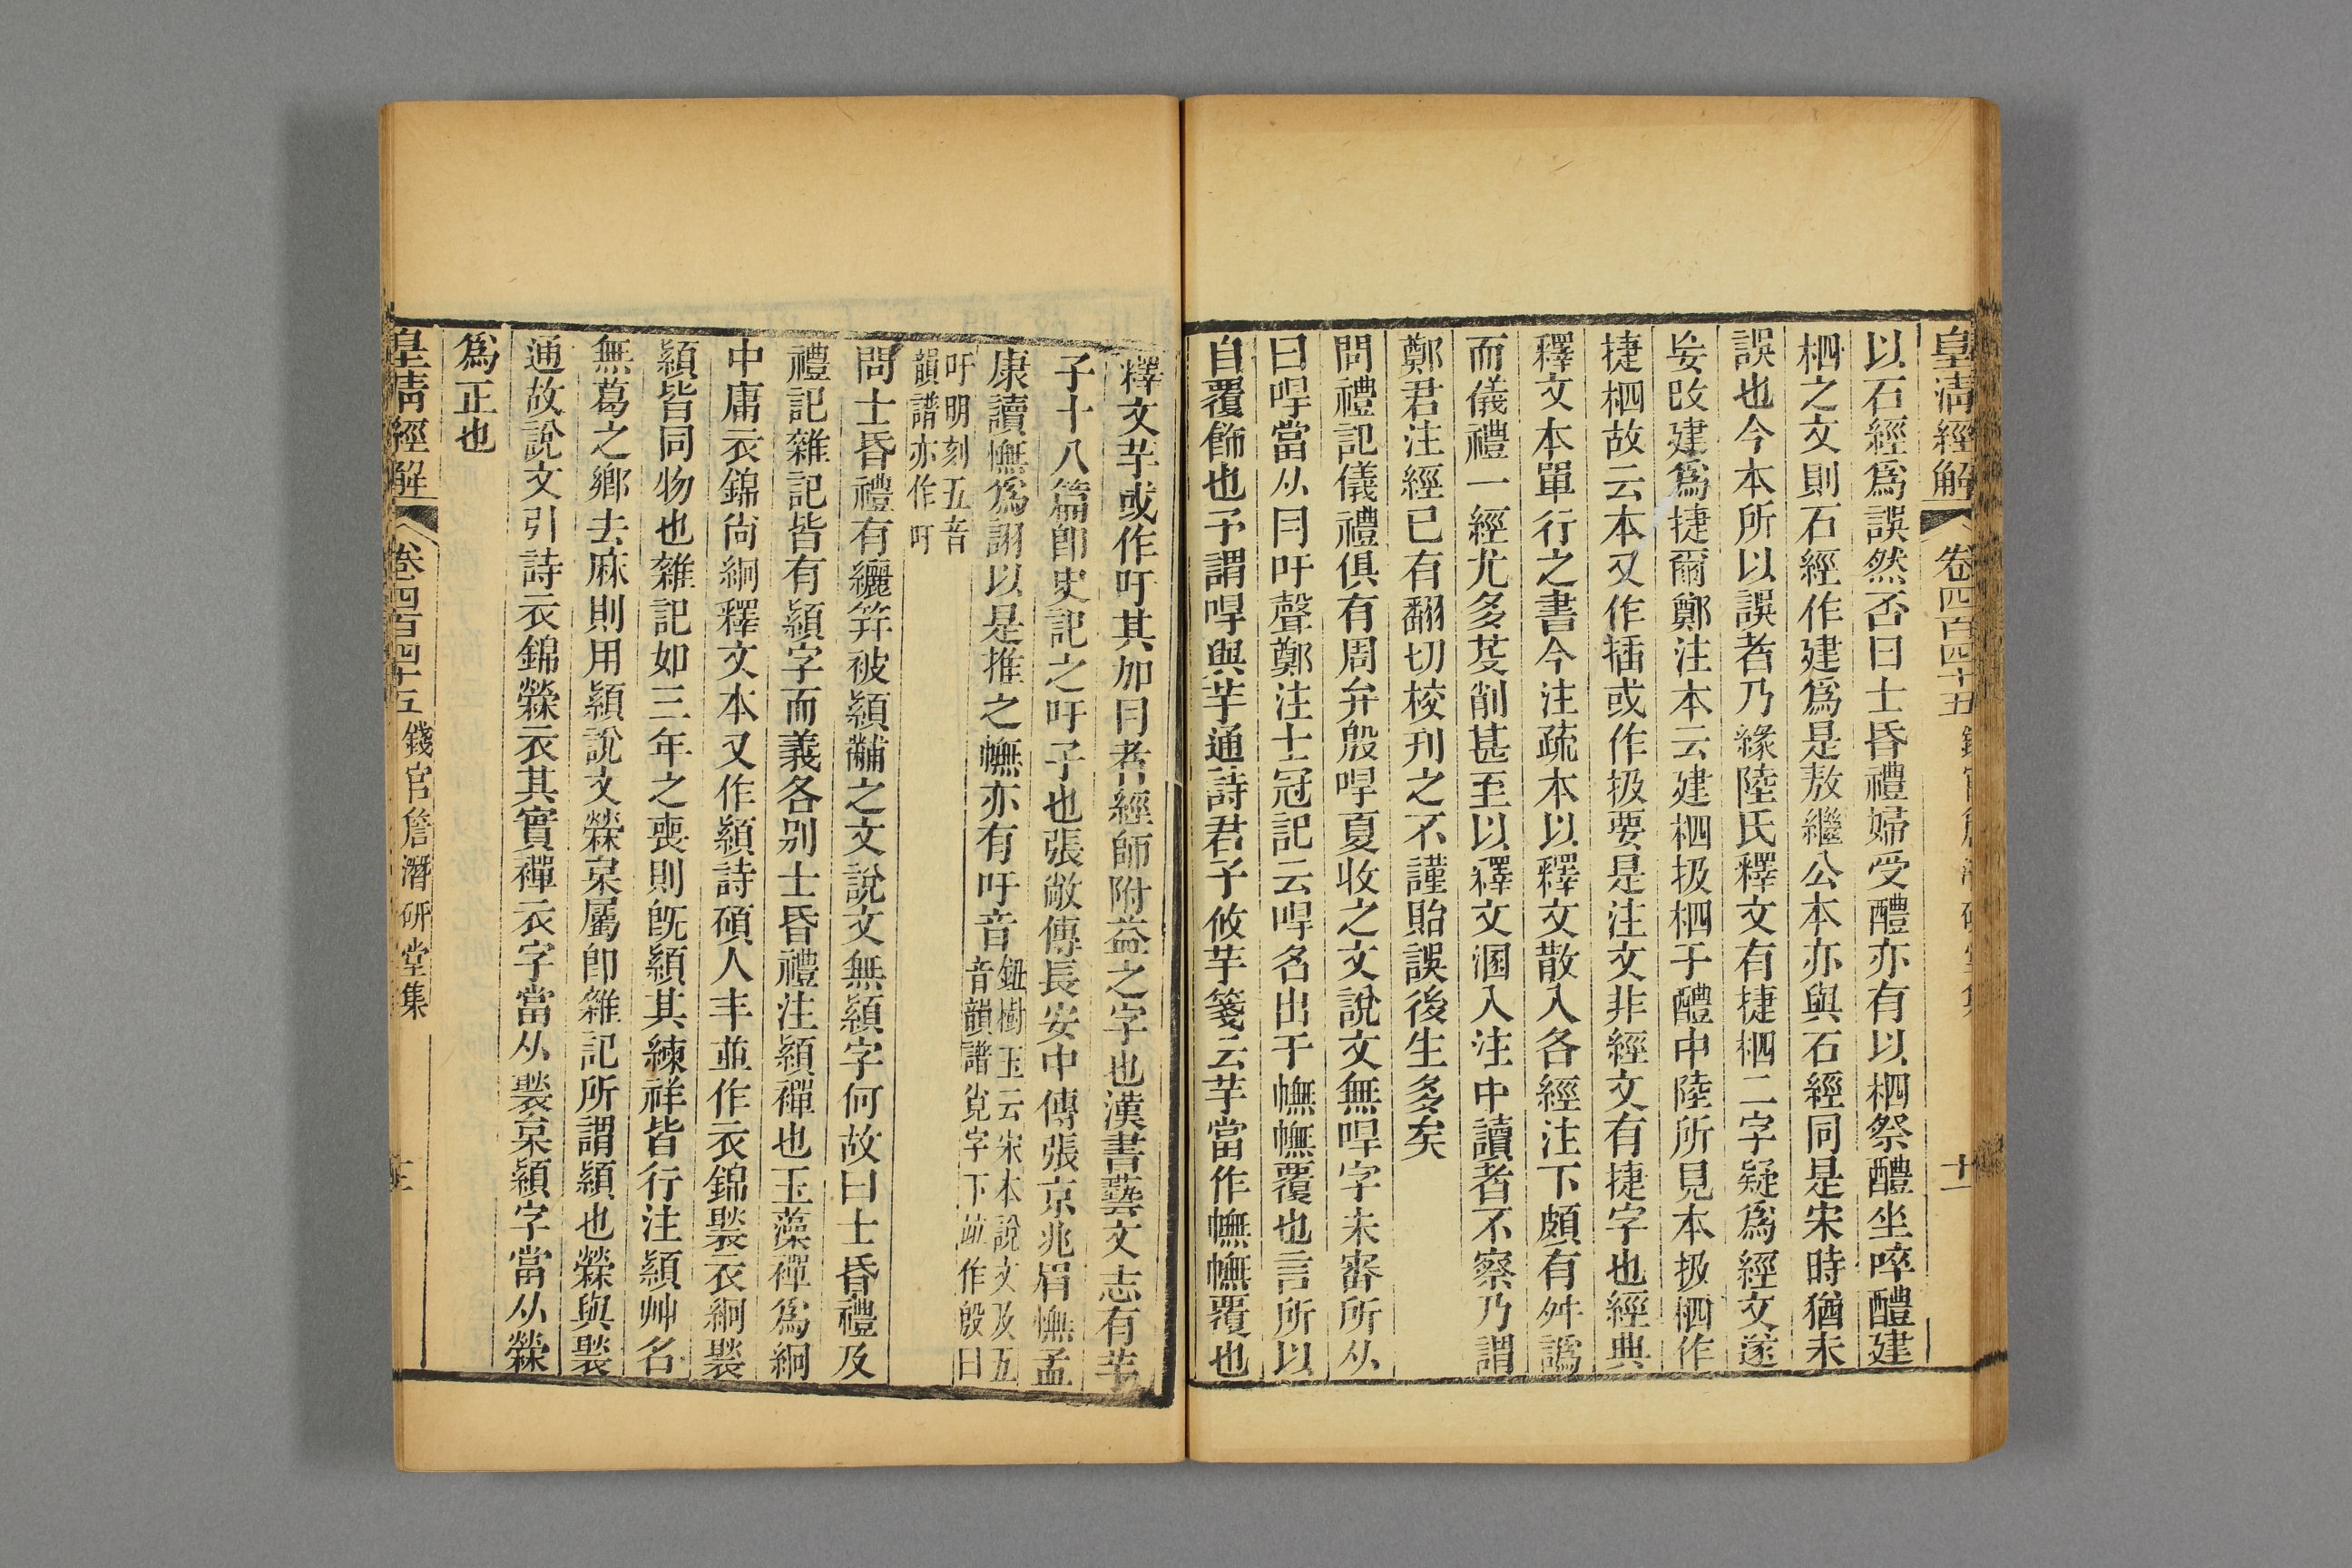 皇淸經解 卷四百四十五 錢官詹潛研堂集 十一
以石經爲誤然否曰士昏禮婦受醴亦有以柶祭醴坐啐醴建
柶之文則石經作建爲是敖繼公本亦與石經同是宋時猶未
誤也今本所以誤者乃緣陸氏釋文有捷柶二字疑爲經文遂
妄改建爲捷爾鄭注本云建柶扱柶于醴中陸所見本扱柶作
捷柶故云本又作插或作扱要是注文非經文有捷字也經典
釋文本單行之書今注疏本以釋文散入各經注下頗有舛譌
而儀禮一經尤多芟削甚至以釋文溷入注中讀者不察乃謂
鄭君注經已有翻切校刊之不謹貽誤後生多矣
問禮記儀禮俱有周弁殷哻夏收之文說文無哻字未審所从
曰哻當从冃吁聲鄭注士冠記云哻名出于幠幠覆也言所以
自覆飾也予謂哻與芋通詩君子攸芋箋云芋當作幠幠覆也
釋文芋或作吁其加冃者經師附益之字也漢書藝文志有芋
子十八篇卽史記之吁子也張敞傳長安中傳張京兆眉憮孟
康讀憮爲詡以是推之幠亦有吁音鈕樹玉云宋本說文及五音韻譜覍字下竝作殷曰
吁明刻五音韻譜亦作吁
問士昏禮有纚笄被熲黼之文說文無熲字何故曰士昏禮及
禮記雜記皆有熲字而義各別士昏禮注熲襌也玉藻襌爲絅
中庸衣錦尙絅釋文本又作熲詩碩人丰並作衣錦褧衣絅褧
熲皆同物也雜記如三年之喪則旣熲其練祥皆行注熲艸名
無葛之鄉去麻則用熲說文檾枲屬卽雜記所謂熲也檾與褧
通故說文引詩衣錦檾衣其實襌衣字當从褧枲熲字當从檾
爲正也
皇淸經解 卷四百四十五 錢官詹潛研堂集